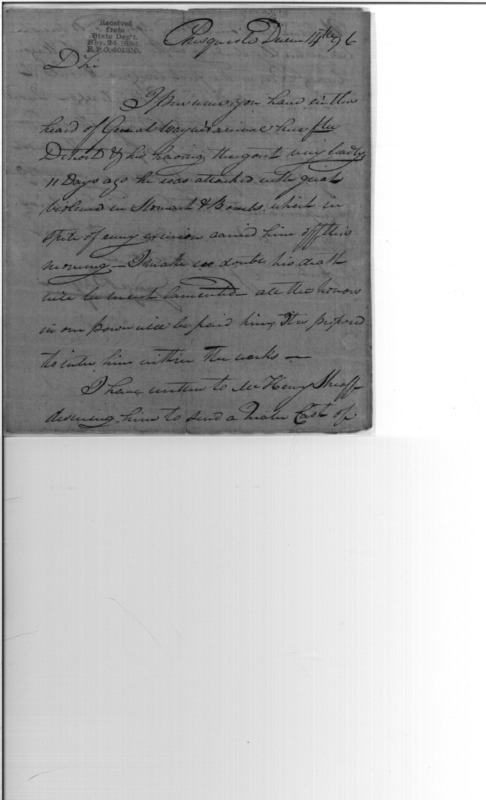 Received
from
State Dep't.
Nov. 24
R.P.O.
Presquisle Decem 14th 96
D Sir
I presume you have ere this
heard of General Wayne's arrival here from
Detroit & his having the gout very badly
11 Days ago he was attacked with great
violence in Stomach & Bowels, which in
spite of every exertion carried him off this
morning — I make no doubt his death
will be much lamented — all the honors
in our power will be paid him, It is proposed
to inter him within the works —
I have written to Mr Henry
desiring him to send a of